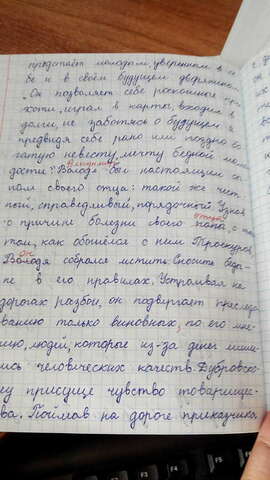 предстаёт молодым, уверенным в се
бе и в своём будущем дворянином
. Он позволяет себе роскошные при
хоти, играл в карты, входил в
долги, не заботясь о будущем и
предвидя себе рано или поздно бо
гатую невесту, мечту бедной моло
дости." Володя был настоящим сы
Владимир
ном своего отца: такой же чест
ный, справедливый, порядочный. Узнав
о причине болезни своего папа, о
отца
том, как обошёлся с ним Троекуров,
Он
Володя собрался мстить. Сносить беды
не в его правилах. Устраивая на
дорогах разбои, он подвергает преследо
ванию только виновных, по его мне
нию, людей, которые из-за денег лиши
лись человеческих качеств. Дубровско
му присуще чувство товарищес-
ва. Поймав на дороге приказчика